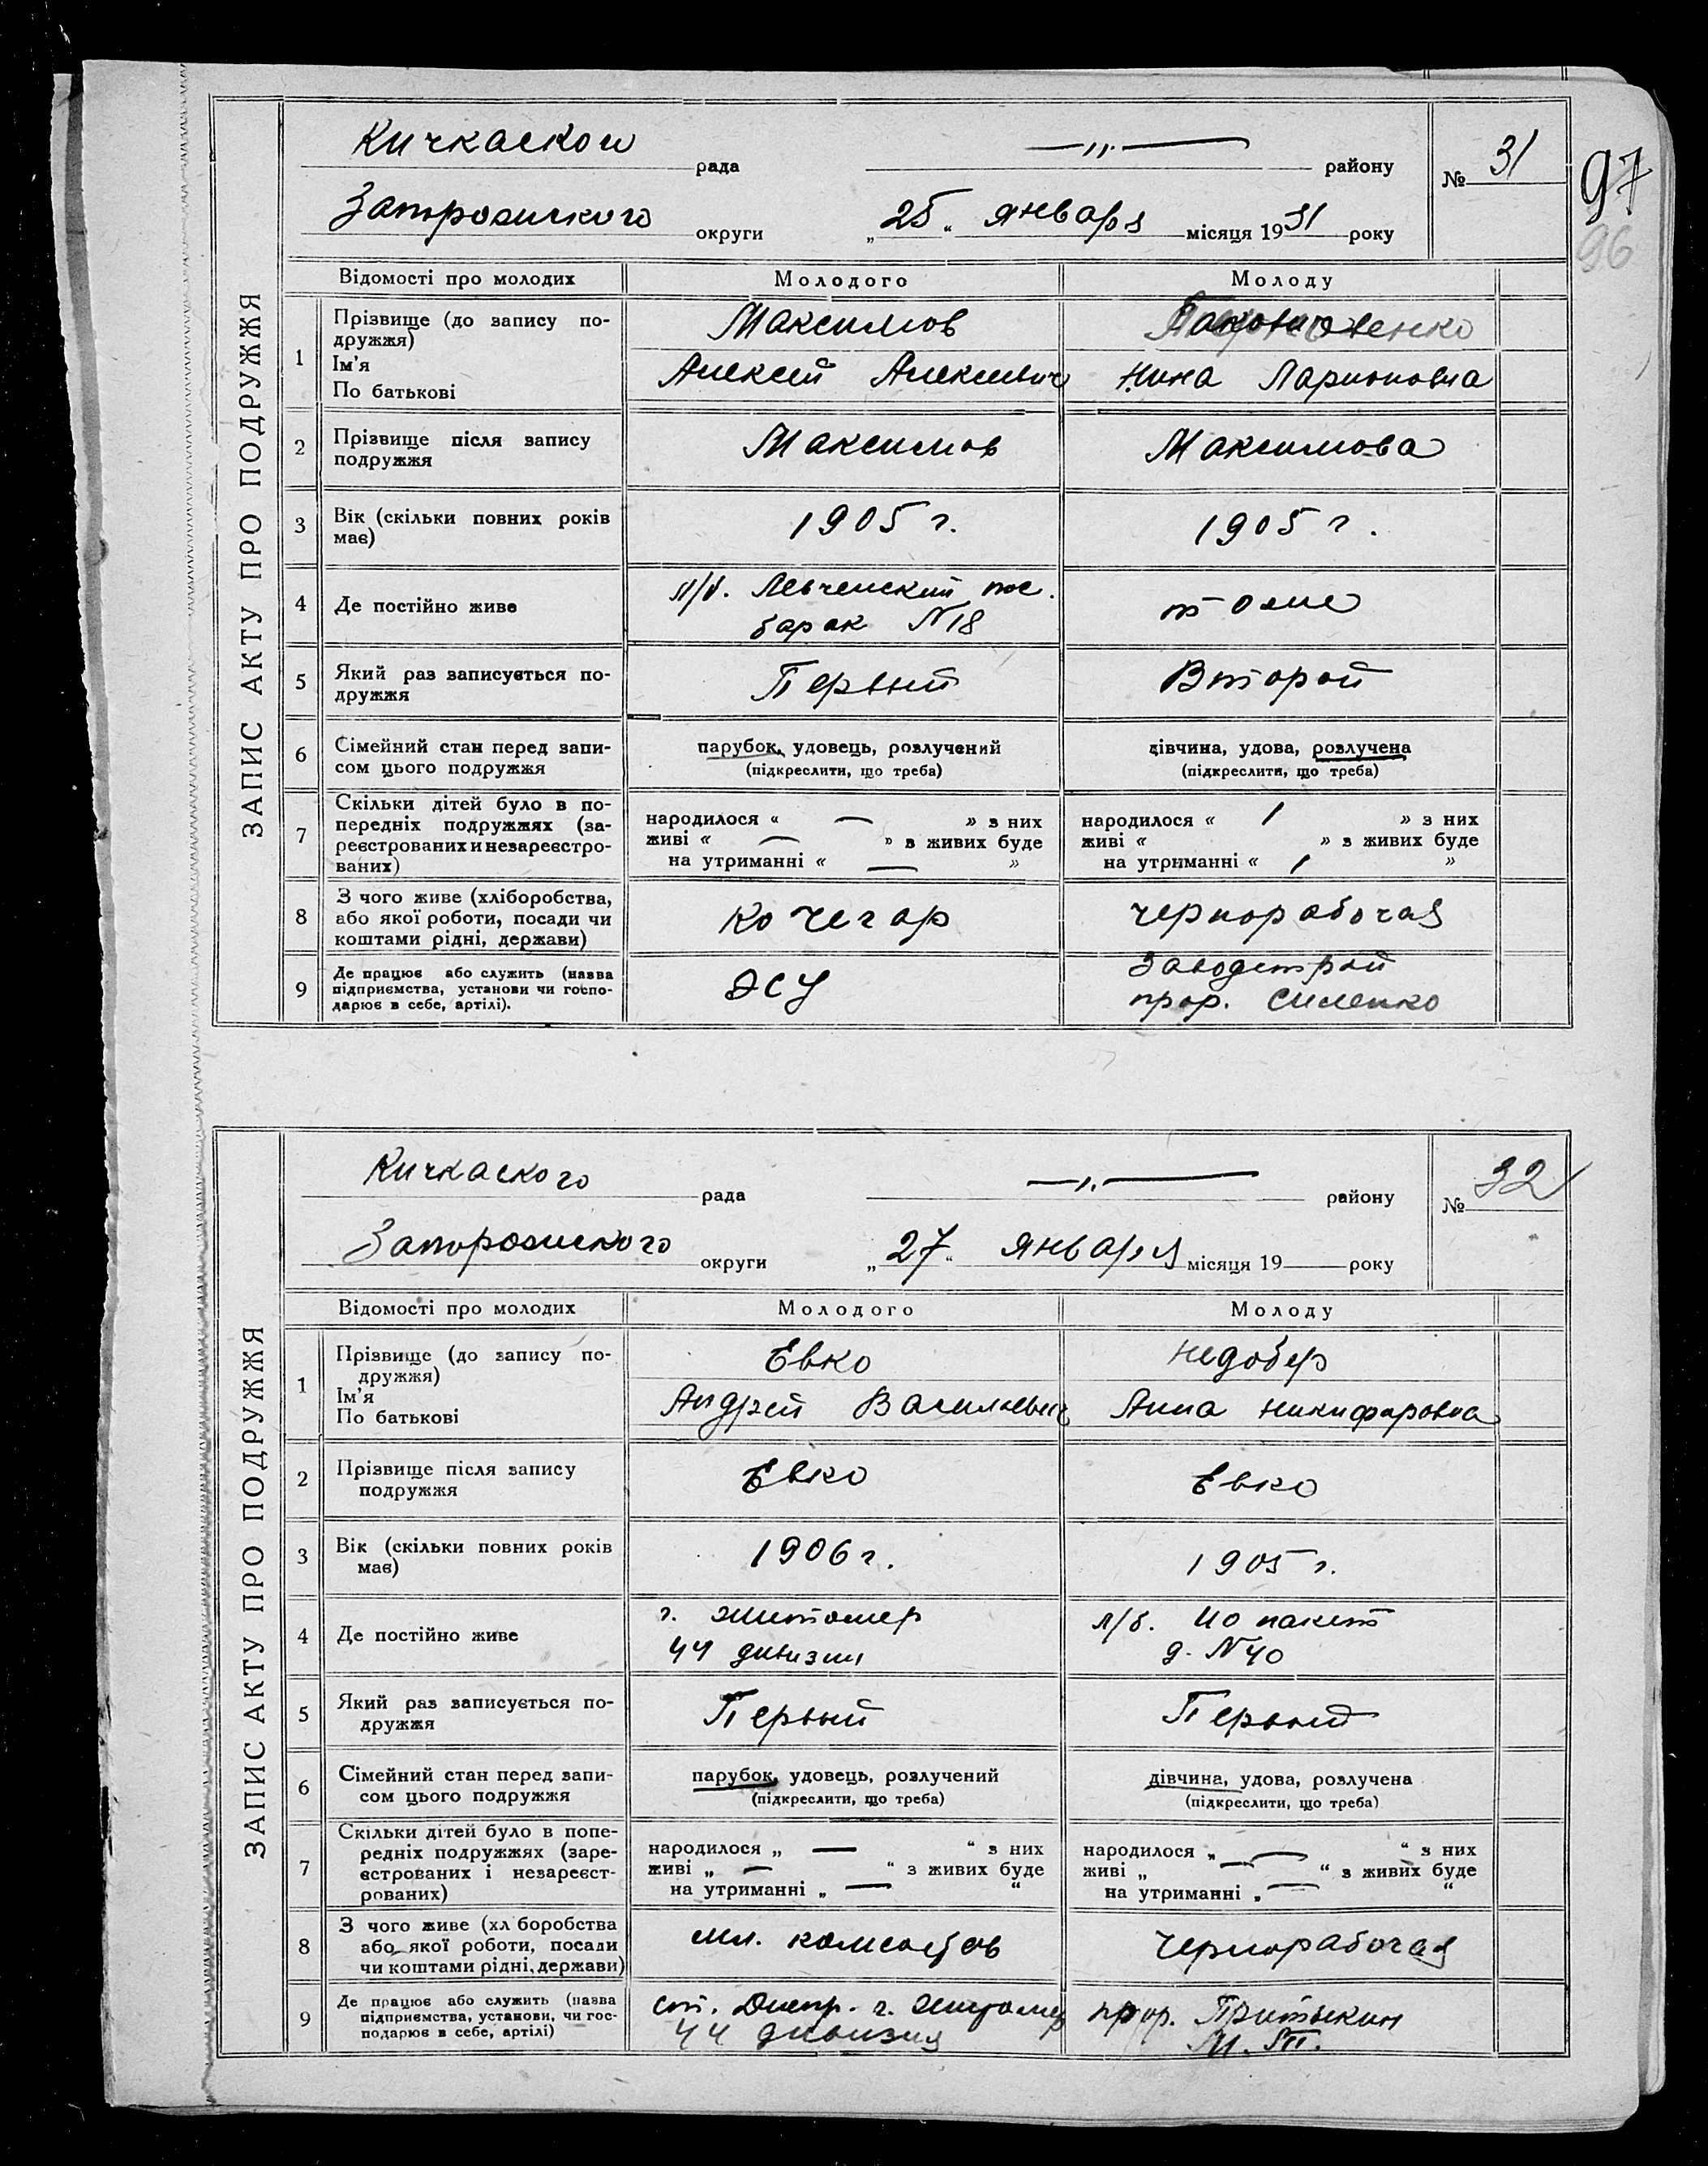 ЗАПИС АКТУ ПРО ПОДРУЖЖЯ
Кичкаской рада —〃— району № 31
97
96
Запорожского округи „25“ января місяця 1931 року
Відомості про молодих Молодого Молоду
1 Прізвище (до запису подружжя) Максимов
Ім'я По батькові Алексей Алексеевич Нина Ларионовна
2 Прізвище після запису подружжя Максимов Максимова
3 Вік (скільки повних років має) 1905 г. 1905 г.
4 Де постійно живе л/б. Левченский пос. тоже
барак N 18
5 Який раз записується подружжя Первый Второй
6 Сімейний стан перед записом цього подружжя парубок, удовець, розлучений дівчина, удова, розлучена
(підкреслити, що треба) (підкреслити, що треба)
7 Скільки дітей було в попередніх подружжях (зареєстрованих и незареєстрованих)
народилося « — » з них народилося « 1 » з них
живі « — » в живих буде живі « » з живих буде
на утриманні « — » на утриманні « 1 »
8 З чого живе (хліборобства, або якої роботи, посади чи коштами рідні, держави) Кочегар чернорабочая
9 Де працює або служить (назва підприємства, установи чи господарює в себе, артілі). ЭСУ Заводстрой
прор. Силенко
ЗАПИС АКТУ ПРО ПОДРУЖЖЯ
Кичкаского рада —〃— району № 32
Запорожского округи „27“ января місяця 19 року
Відомості про молодих Молодого Молоду
1 Прізвище (до запису подружжя) Евко Недобер
Ім'я По батькові Андрей Васильевич Анна Никифоровна
2 Прізвище після запису подружжя Евко Евко
3 Вік (скільки повних років має) 1906 г. 1905 г.
4 Де постійно живе г. Житомер л/б.
44 дивизии д. N 40
5 Який раз записується подружжя Первый Первый
6 Сімейний стан перед записом цього подружжя парубок, удовець, розлучений дівчина, удова, розлучена
(підкреслити, що треба) (підкреслити, що треба)
7 Скільки дітей було в попередніх подружжях (зареєстрованих і незареєстрованих)
народилося „ — “ з них народилося „ — “ з них
живі „ — “ з живих буде живі „ — “ з живих буде
на утриманні „ — “ на утриманні „ — “
8 З чого живе (хл боробства або якої роботи, посади чи коштами рідні, держави) мл. комсостав Чернорабочая
9 Де працює або служить (назва підприємства, установи, чи господарює в себе, артілі) ст. Днепр. г. Житомер прор. Притыкин
44 дивизия М. П.